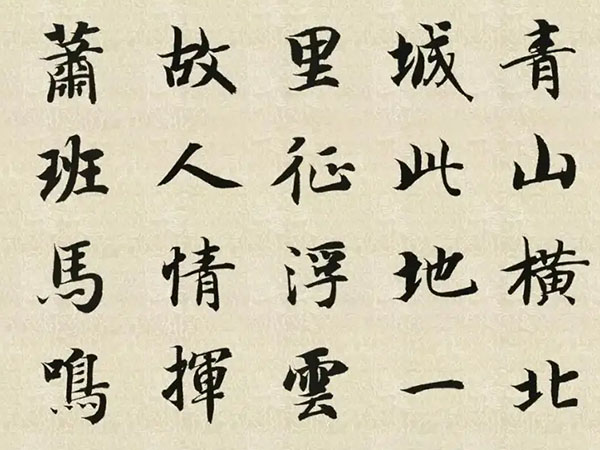 青山橫北
城此地一
里征浮雲
故人情揮
蕭班馬鳴